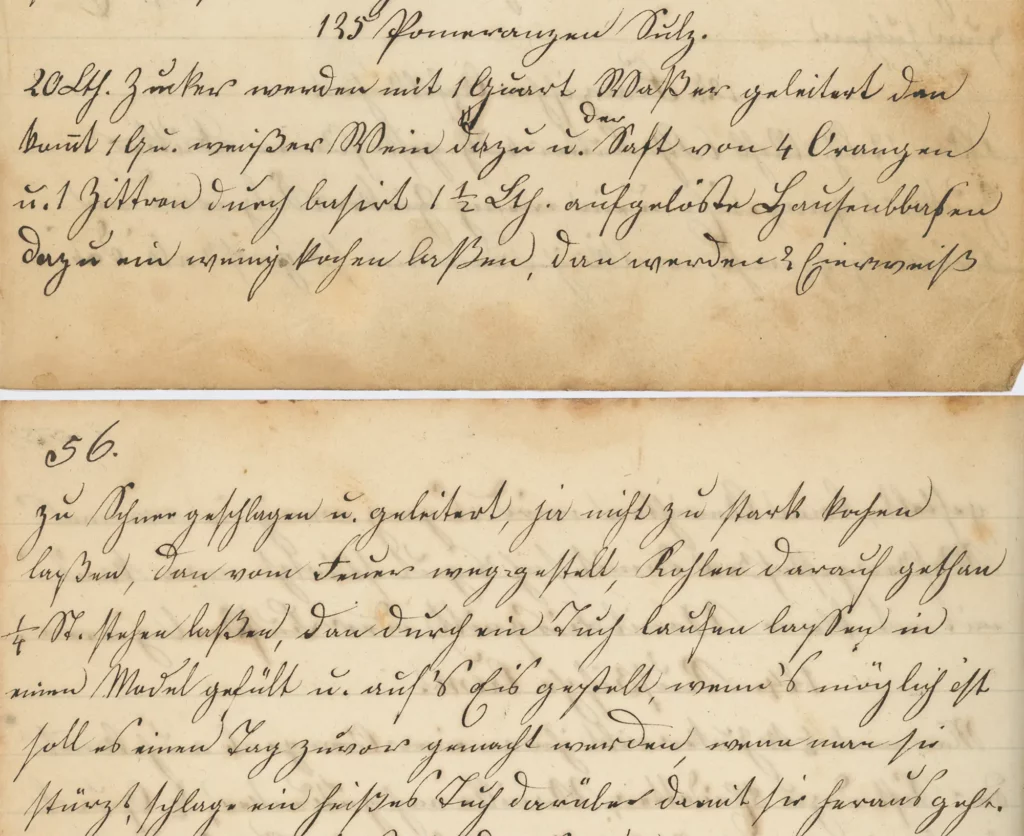 125 Pomeranzen Sulz.
20 Lth. Zucker werden mit 1 Quart Waßer geleitert dan
kom̄t 1 Qu. weißer Wein dazu u. der Saft von 4 Orangen
u. 1 Zittron durch basirt 1 ½ Lth. aufgelöste Hausenblasen
dazu ein wenig kochen laßen, dan werden 2 Eierweiß
56.
zu Schnee geschlagen u. geleitert, ja nicht zu stark kochen
laßen, dan vom Feuer weg-gestelt, Kohlen darauf gethan
¼ St. stehen laßen, dan durch ein Tuch laufen lassen in
einen Model gefült u. auf's Eis gestelt, wenn's möglich ist
soll es einen Tag zuvor gemacht werden, wenn man sie
stürzt, schlage ein heißes Tuch darüber damit sie heraus geht.